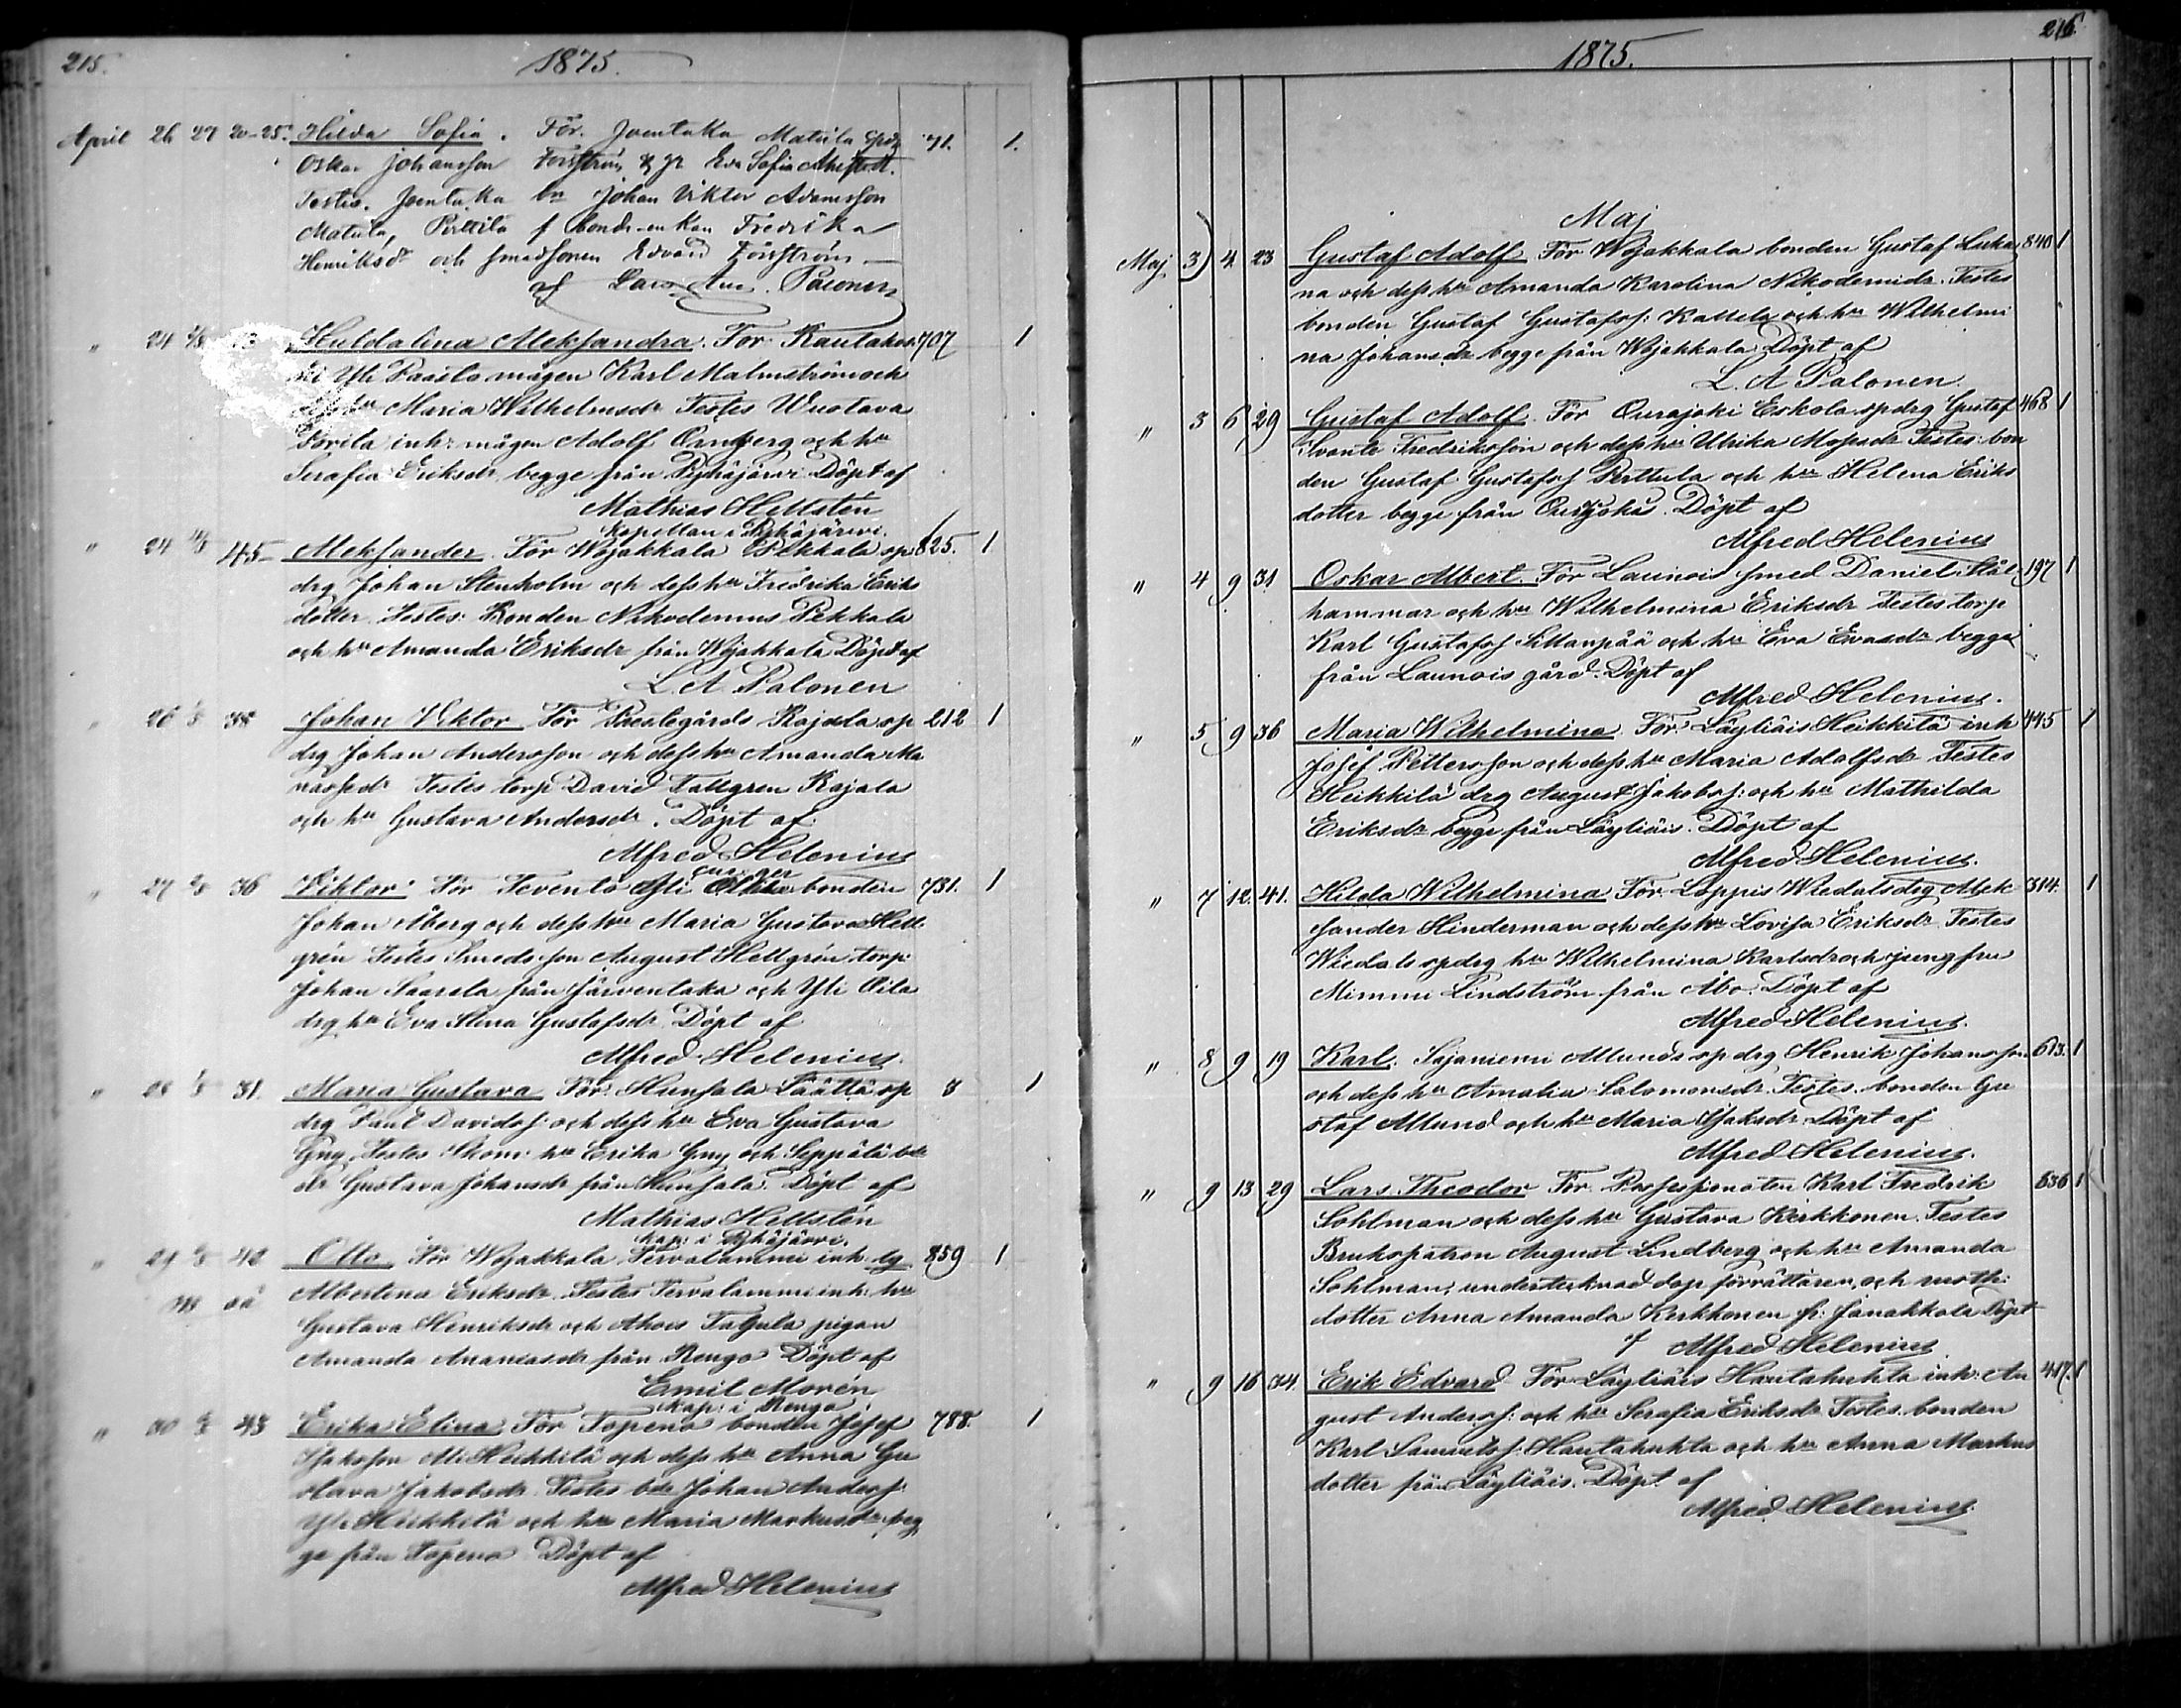 215.
1875.
April 26 27 20-25. Hilda Sofia. För. Joentaka Matula
Oskar Johansson Forström & hr Eva Sofia
Testes. Joentaka bn Johan Viktor Adamsson
Matula, Perttilä f bonde-enkan Fredrika
Henriksdr och smedsonen Edvard Forström
af Lars Aug. Palonen
" 24 Huldalina Aleksandra. För Rautakos 707 1
ki Yli Paasto mågen Karl Malmström och
dess hu Maria Wilhelmsdr Testes Wustava
inh. mågen Adolf Örnberg och hu
Serafia Eriksdr begge från Pyhäjärvi Döpt af
Mathias Hellstén
Kapellan i Pyhäjärvi.
" 24 45 Aleksander. För Wojakkala Pekkala sp 825. 1
drg Johan Stenholm och dess hu Fredrika Eriks
dotter Testes: Bonden Nikodemus Pekkala
och hu Amanda Eriksdr från Wojakkala Döpt af
L. A. Palonen
" 26 38 Johan Viktor För Prestegårds Rajala sp 212 1
drg Johan Andersson och dess hu Amanda Ma
nassedr Testes torp David Tallgren Rajala
och hu Gustava Andersdr. Döpt af
Alfred Helenius
" 27 36 Viktor För Tevento Yli bonden 731. 1
Johan Åberg och dess hu Maria Gustava Hell
grén Testes Smeds son August Hellgrén, torp:
Johan Saarela från Järventaka och Yli Eila
drg hu Eva Stina Gustafsdr. Döpt af
Alfred Helenius.
" 28 31. Maria Gustava För Hunsala Päättä sp 8 1
drg Paul Davidss: och dess hu Eva Gustava
Gny Testes Skom: hu Erika Gny och Seppälä bde
dr Gustava Johansdr från Hunsala. Döpt af
Mathias Hellstén
kap: i Pyhäjärvi.
" 29 42 Otto För Wojakkala Tervalammi inh. 859 1
Albertina Eriksdr. Testes Tervalammi inh: hu
Gustava Henriksdr och Ahois Tagula pigan
Amanda Ananiasdr från Rengo Döpt af
Emil Morén
kap: i Rengo.
" 30 43 Erika Elina För Topeno bonden Josef 788. 1
Isaksson Ali Heikkilä och dess hu Anna Gu
stava Jakobsdr Testes bde Johan Anderss:
Yli Heikkilä och hu Maria Markusdr beg
ge från Topeno Döpt af
Alfred Helenius
216.
1875.
Maj
Maj. 3 4 23 Gustaf Adolf För Wojakkala bonden Gustaf Luka 840 1
na och dess hu Amanda Karolina Nikodemidr. Testes
bonden Gustaf Gustafss: Kattela och hu Wilhelmi
na Johansdr begge från Wojakkala Döpt af
L. A Palonen.
" 3 6 29 Gustaf Adolf För Ourajoki Eskola sp drg Gustaf 468 1
Svante Fredriksson och dess hu Ulrika Mosesdr Testes: bon
den Gustaf Gustafss Perttula och hu Helena Eriks
dotter begge från Ourajoki. Döpt af
Alfred Helenius
" 4 9 31 Oskar Albert För Launois smed Daniel Stål 197 1
hammar och hu Wilhelmina Eriksdr Testes torp
Karl Gustafss Sillanpää och hu Eva Evasdr begge
från Launois gård. Döpt af
Alfred Helenius.
" 5 9 36 Maria Wilhelmina För Läyliäis Heikkilä inh 445 1
Josef Pettersson och dess hu Maria Adolfsdr Testes
Heikkilä drg August Jakobss: och hu Mathilda
Eriksdr begge från Läyliäis. Döpt af
Alfred Helenius.
" 7 12. 41. Hilda Wilhelmina För Loppis Wiedals drg Alek 314. 1
sander Hinderman och dess hu Lovisa Eriksdr Testes
Wiedals sp drg hu Wilhelmina Karlsdr och jungfru
Mimmi Lindström från Åbo. Döpt af
Alfred Helenius.
" 8 9 19 Karl. Sajaniemi Alunds sp drg Henrik Johansson 613. 1
och dess hu Amalia Salomonsdr Testes. bonden Gu
staf Alund och hu Maria Isaksdr Döpt af
Alfred Helenius.
" 9 13 29 Lars Theodor För Professionaten Karl Fredrik 636 1
Sohlman och dess hu Gustava Kerkkonen. Testes
Brukspatron August Lindberg och hu Amanda
Sohlman, undertecknad dop förrättaren, och rusth:
dotter Anna Amanda Kerkkonen fr: Janakkala Döpt
af Alfred Helenius
" 9 16 34. Erik Edvard För Läyliäis Hautahuhta inh: Au 417. 1
gust Anderss: och hu Serafia Eriksdr Testes. bonden
Karl Samuelss: Hautahuhta och hu Anna Markus
dotter från Läyliäis. Döpt af
Alfred Helenius.